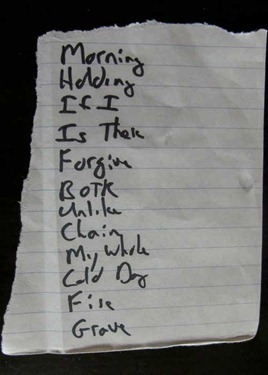 Morning
Holding
If I
Is There
Forgive
BOTK
Unlike
Chain
My Whole
Cold Day
Fire
Grave